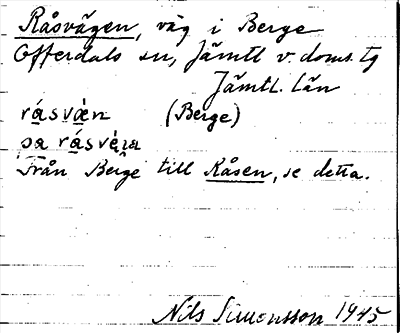 Råsvägen, väg i Berge
Offerdals sn, Jämtl v. doms. tg
Jämtl. län
rásvàn (Berge)
pa rásvàṇa
Från Berge till Råsen, se detta.
Nils Simonsson 1945